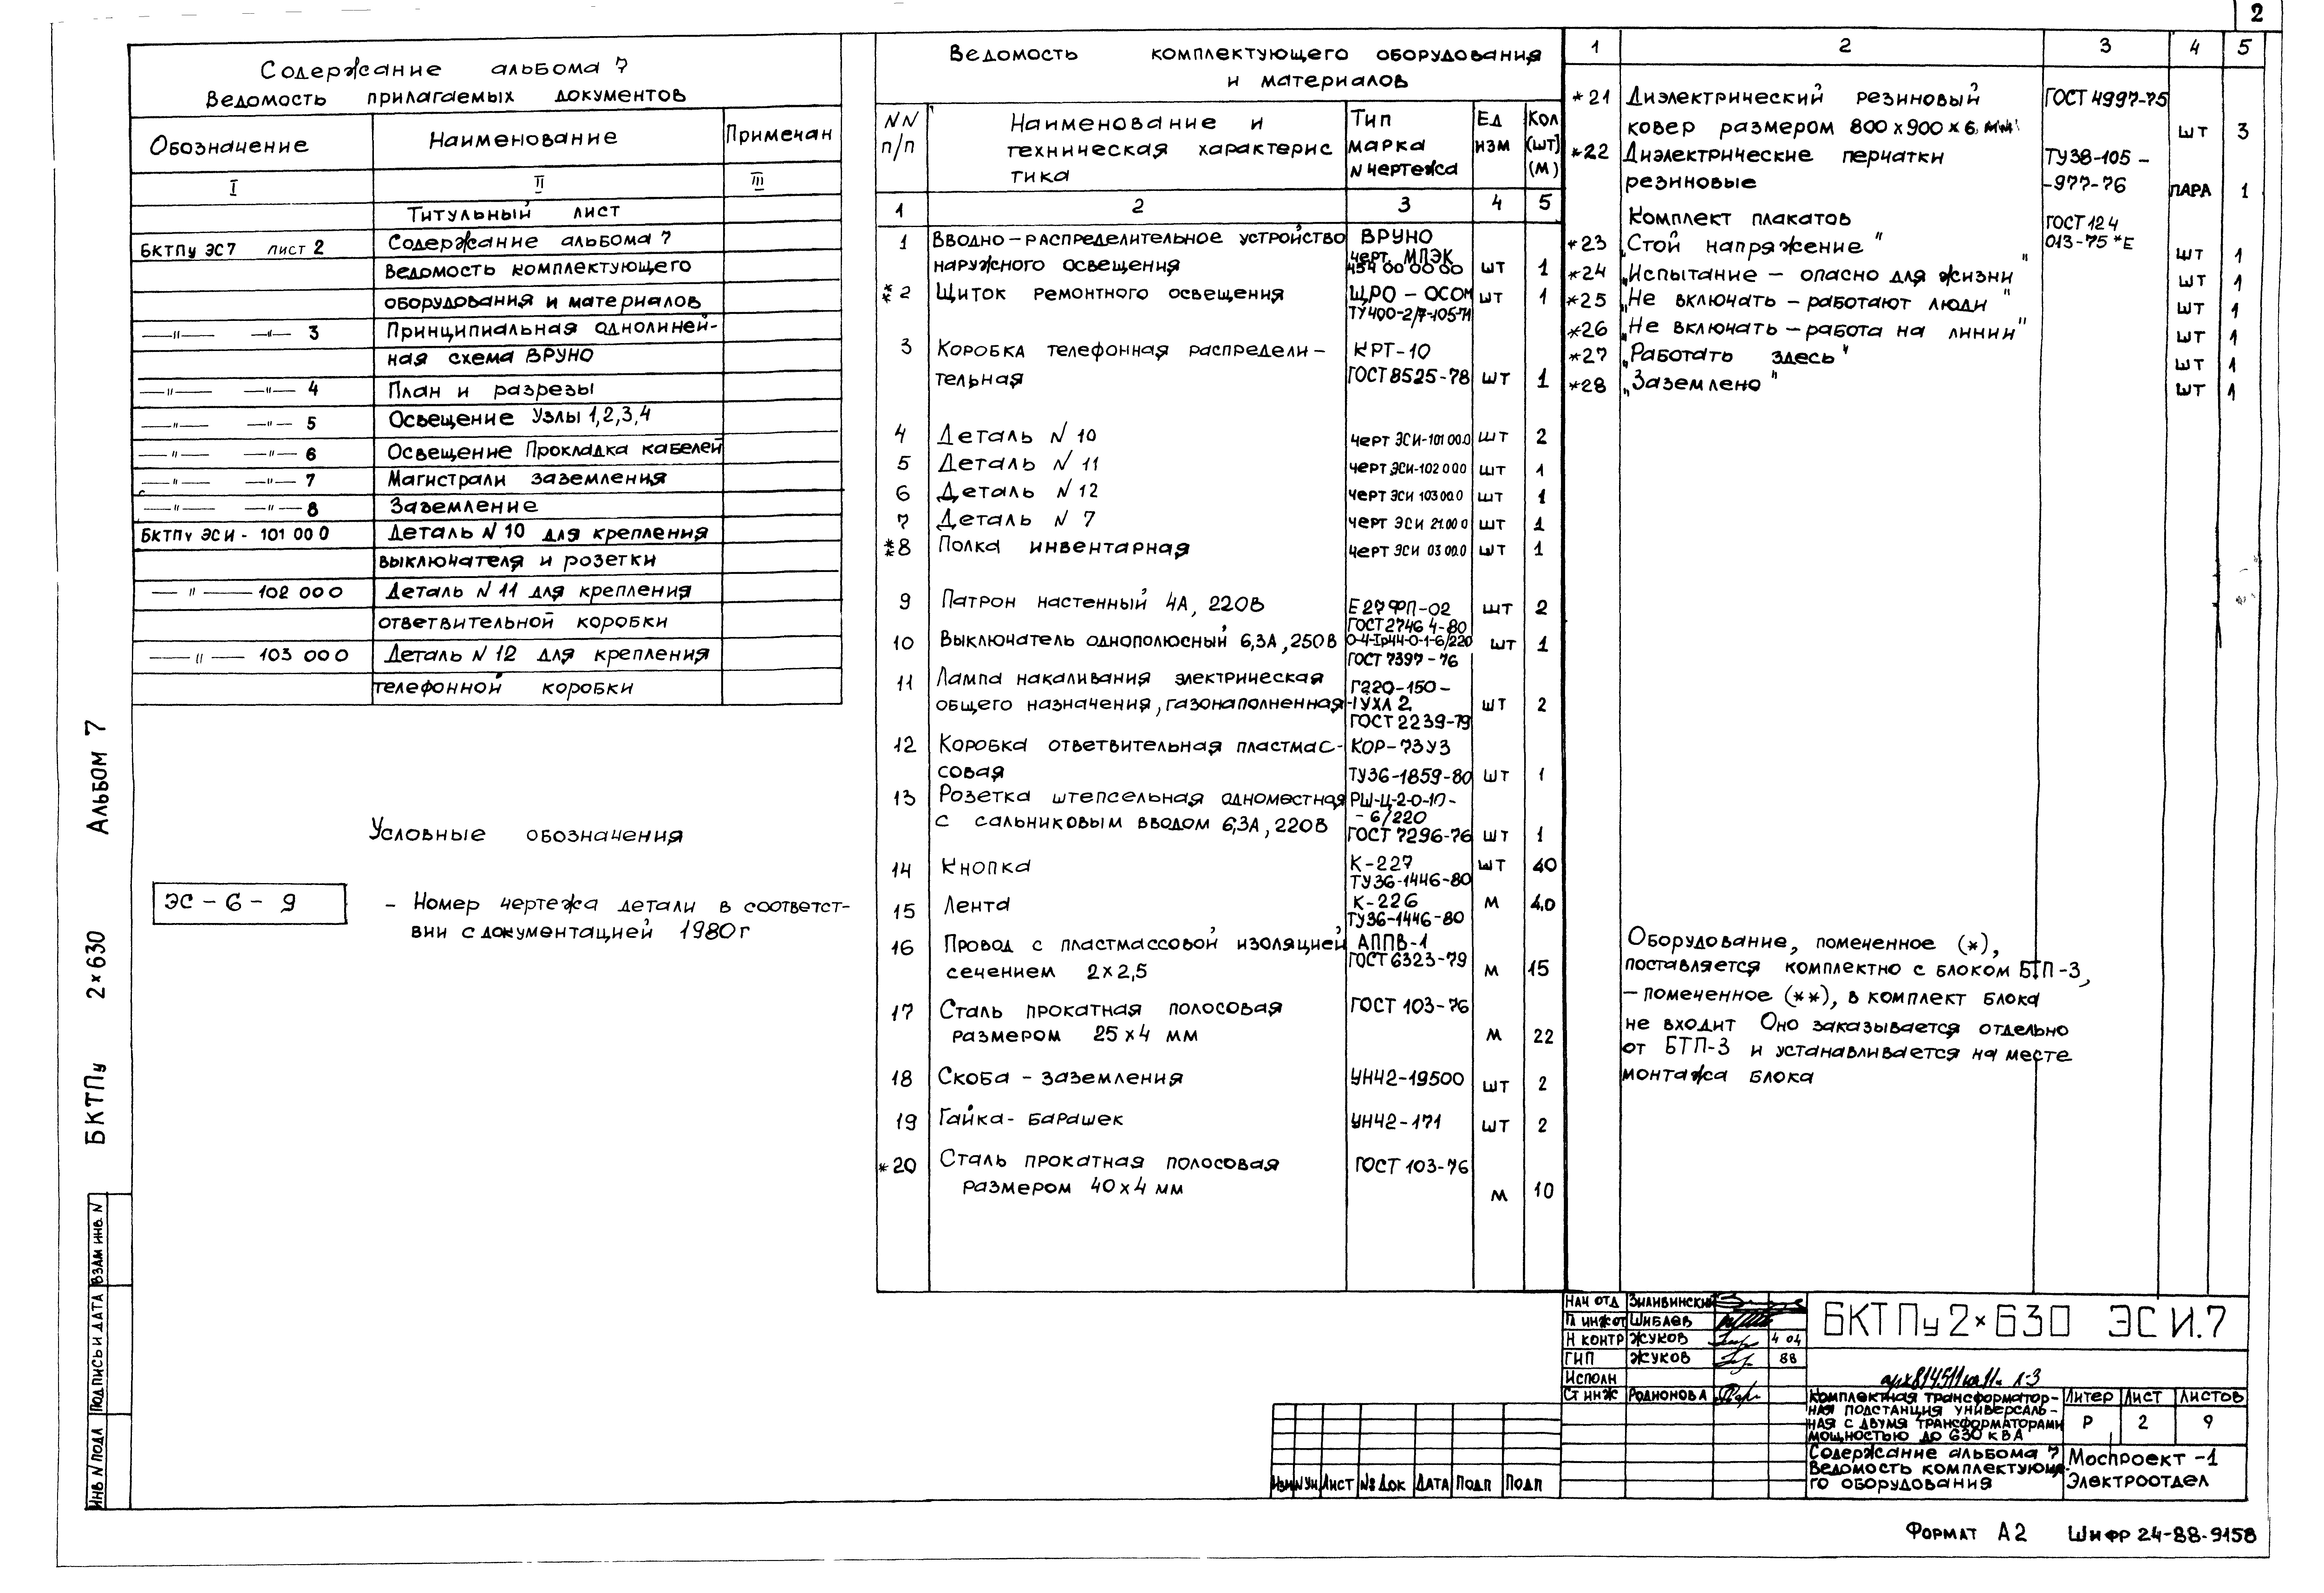 2
Содержание альбома 7
Ведомость прилагаемых документов
Обозначение Наименование Примечан
I II III
Титульный лист
БКТПу ЭС7 лист 2 Содержание альбома 7
Ведомость комплектующего
оборудования и материалов
—"— —"— 3 Принципиальная однолиней-
ная схема ВРУНО
—"— —"— 4 План и разрезы
—"— —"— 5 Освещение Узлы 1,2,3,4
—"— —"— 6 Освещение Прокладка кабелей
—"— —"— 7 Магистрали заземления
—"— —"— 8 Заземление
БКТПу ЭСИ - 101 00 0 Деталь N 10 для крепления
выключателя и розетки
—"— 102 00 0 Деталь N 11 для крепления
ответвительной коробки
—"— 103 00 0 Деталь N 12 для крепления
телефонной коробки
Условные обозначения
ЭС - 6 - 9 - Номер чертежа детали в соответст-
вии с документацией 1980г
Ведомость комплектующего оборудования
и материалов
NN п/п
Наименование и
техническая характерис
тика
Тип
марка
N чертежа
Ед
изм
Кол
(шт)
(м)
1 2 3 4 5
1 Вводно - распределительное устройство ВРУНО
наружного освещения черт. МПЭК
454 00 00 00 шт 1
** 2 Щиток ремонтного освещения ЩРО - ОСОМ шт 1
ТУ400-2/7-105-71
3 Коробка телефонная распредели - КРТ-10
тельная ГОСТ 8525-78 шт 1
4 Деталь N 10 черт ЭСИ-101 00.0 шт 2
5 Деталь N 11 черт ЭСИ-102 00 0 шт 1
6 Деталь N 12 черт ЭСИ 103 00.0 шт 1
7 Деталь N 7 черт ЭСИ 21.00 0 шт 1
** 8 Полка инвентарная черт ЭСИ 03 00.0 шт 1
9 Патрон настенный 4А, 220В Е27ФП-02 шт 2
ГОСТ2746 4-80
10 Выключатель однополюсный 6,3А, 250В О-4-Iр44-0-1-6/220 шт 1
ГОСТ 7397-76
11 Лампа накаливания электрическая Г220-150-
общего назначения, газонаполненная -1УХЛ 2 шт 2
ГОСТ 2239-79
12 Коробка ответвительная пластмас- КОР-73У3
совая ТУ36-1859-80 шт 1
13 Розетка штепсельная одноместная РШ-Ц-2-0-10-
с сальниковым вводом 6,3А, 220В - 6/220
ГОСТ 7296-76 шт 1
14 Кнопка К-227 шт 40
ТУ36-1446-80
15 Лента К-226 м 4,0
ТУ36-1446-80
16 Провод с пластмассовой изоляцией АППВ-1
сечением 2×2,5 ГОСТ 6323-79 м 15
17 Сталь прокатная полосовая ГОСТ 103-76
размером 25×4 мм м 22
18 Скоба - заземления УН42-19500 шт 2
19 Гайка- барашек УН42-171 шт 2
*20 Сталь прокатная полосовая ГОСТ 103-76
размером 40×4 мм м 10
1 2 3 4 5
*21 Диэлектрический резиновый ГОСТ 4997-75
ковер размером 800×900×6 мм шт 3
*22 Диэлектрические перчатки ТУ38-105-
резиновые -977-76 пара 1
Комплект плакатов ГОСТ 12 4
*23 „Стой напряжение" 013-75 *Е шт 1
*24 „Испытание - опасно для жизни" шт 1
*25 „Не включать - работают люди" шт 1
*26 „Не включать - работа на линии" шт 1
*27 „Работать здесь" шт 1
*28 „Заземлено" шт 1
Оборудование, помеченное (*),
поставляется комплектно с блоком БТП-3,
- помеченное (**), в комплект блока
не входит Оно заказывается отдельно
от БТП-3 и устанавливается на месте
монтажа блока
БКТПу 2×630 Альбом 7
Взам инв. N
Подпись и дата
Инв N подл
Нач отд Зиливинский
Гл инж от Шибаев
Н контр Жуков 4 04
ГИП Жуков 88
Исполн
Ст инж Родионова
БКТПу 2×630 ЭСИ.7
Комплектная трансформатор-
ная подстанция универсаль-
ная с двумя трансформаторами
мощностью до 630 кВА
Литер Лист Листов
Р 2 9
Содержание альбома 7
Ведомость комплектующе-
го оборудования
Моспроект -1
Электроотдел
Изм N уч Лист №Док Дата Подп Подп
Формат А2 Шифр 24-88-9158